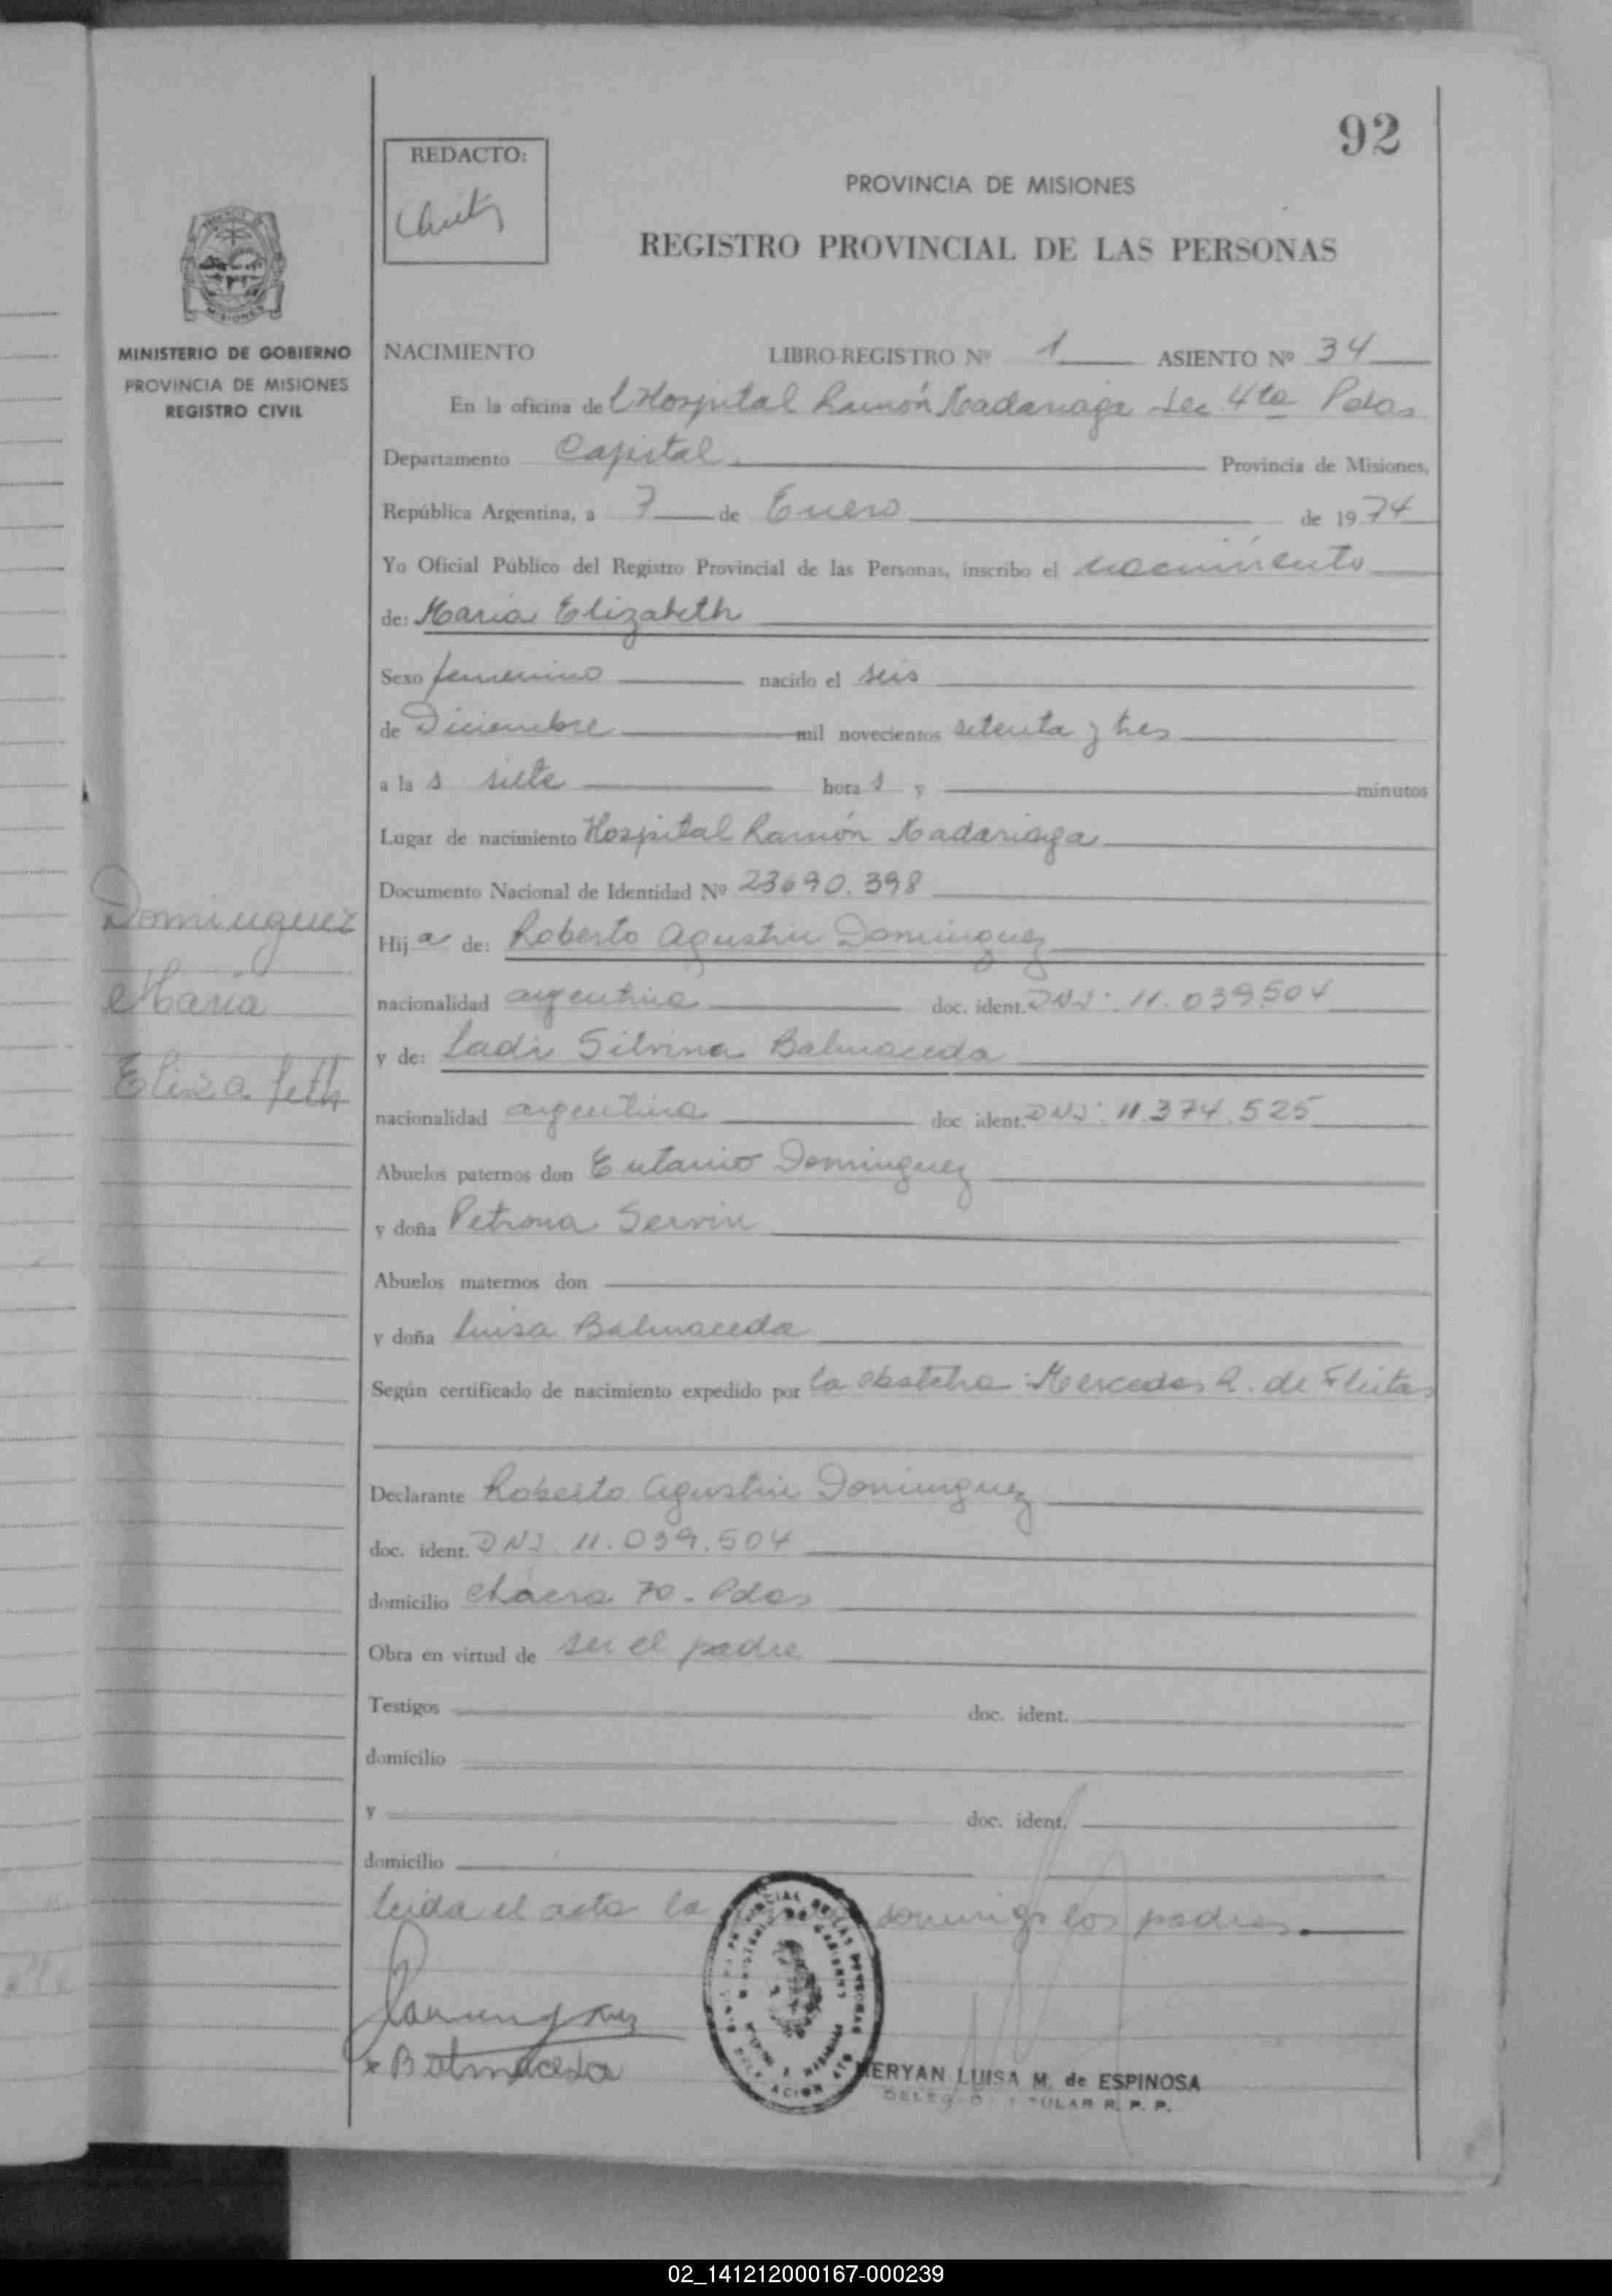 92
REDACTO:
PROVINCIA DE MISIONES
REGISTRO PROVINCIAL DE LAS PERSONAS
MISIONES
MINISTERIO DE GOBIERNO
PROVINCIA DE MISIONES
REGISTRO CIVIL
NACIMIENTO LIBRO-REGISTRO Nº 1 ASIENTO Nº 34
En la oficina del Hospital Ramón Madariaga Sec 4ta Pdas
Departamento Capital Provincia de Misiones,
República Argentina, a 7 de Enero de 1974
Yo Oficial Público del Registro Provincial de las Personas, inscribo el nacimiento
de: Maria Elizabeth
Sexo femenino nacido el seis
de Diciembre mil novecientos setenta y tres
a la s siete hora s y minutos
Lugar de nacimiento Hospital Ramón Madariaga
Documento Nacional de Identidad Nº 23690.398
Hija de: Roberto Agustin Dominguez
nacionalidad argentina doc. ident. DNI: 11.039.504
y de: Ladi Silvina Balmaceda
nacionalidad argentina doc. ident. DNI: 11.374.525
Abuelos paternos don Dominguez
y doña Petrona Servin
Abuelos maternos don
y doña Luisa Balmaceda
Según certificado de nacimiento expedido por la obstetra: Mercedes R. de Fleitas
Declarante Roberto Agustin Dominguez
doc. ident. DNI 11.039.504
domicilio chacra 70 - Pdas
Obra en virtud de ser el padre
Testigos doc. ident.
domicilio
y doc. ident.
domicilio
leida el acta la los padres
Dominguez
Maria
Elizabeth
Dominguez
x Balmaceda
MERYAN LUISA M. de ESPINOSA
TULAR R. P. P.
02_141212000167-000239